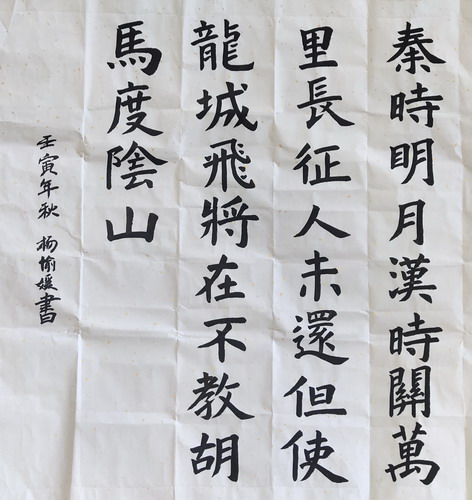 秦時明月漢時關萬
里長征人未還但使
龍城飛將在不教胡
馬度陰山
壬寅年秋 楊愉媛書